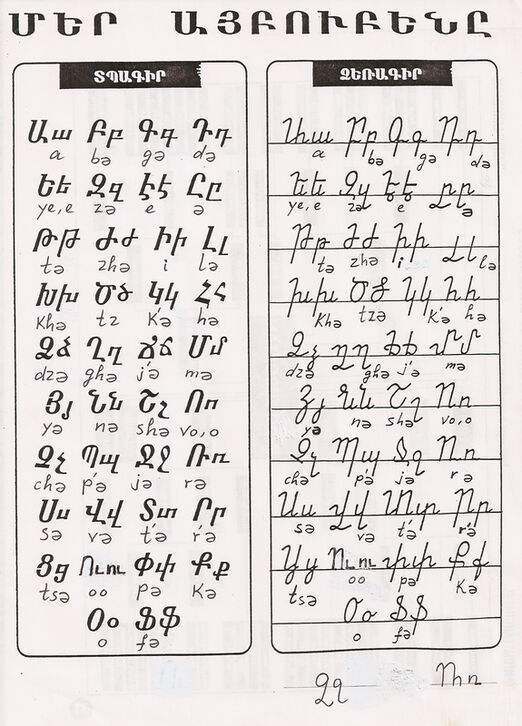 ՄԵՐ ԱՅԲՈՒԲԵՆԸ
ՏՊԱԳԻՐ
Աա Բբ Գգ Դդ
a bə gə də
Եե Զզ Էէ Ըը
ye,e zə e ə
Թթ Ժժ Իի Լլ
tə zhə i lə
Խխ Ծծ Կկ Հհ
khə tz k'ə hə
Ձձ Ղղ Ճճ Մմ
dzə ghə j'ə mə
Յյ Նն Շշ Ոո
yə nə shə vo,o
Չչ Պպ Ջջ Ռռ
chə p'ə jə rə
Սս Վվ Տտ Րր
sə və t'ə r'ə
Ցց Ուու Փփ Քք
tsə oo pə kə
Օօ Ֆֆ
o fə
ՁԵՌԱԳԻՐ
Աա Բբ Գգ Դդ
a bə gə də
Եե Զզ Էէ Ըը
ye,e zə e ə
Թթ Ժժ Իի Լլ
tə zhə i lə
Խխ Ծծ Կկ Հհ
khə tzə k'ə hə
Ձձ Ղղ Ճճ Մմ
dzə ghə j'ə mə
Յյ Նն Շշ Ոո
yə nə shə vo,o
Չչ Պպ Ջջ Ռռ
chə p'ə jə rə
Սս Վվ Տտ Րր
sə və t'ə r'ə
Ցց Ուու Փփ Քք
tsə oo pə kə
Օօ Ֆֆ
o fə